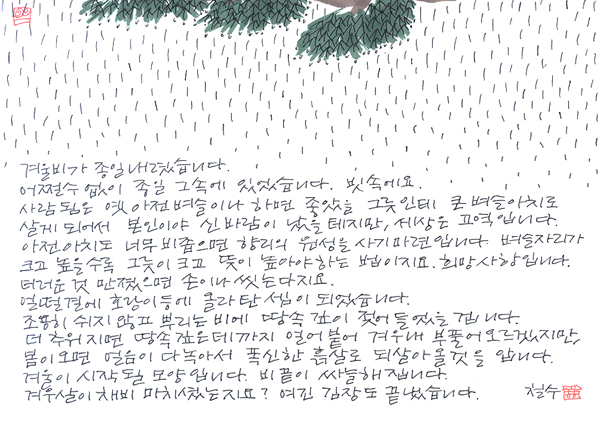 겨울비가 종일 내렸습니다.
어쩔수 없이 종일 그속에 있었습니다. 빗속에요.
사람됨은 옛 아전벼슬이나 하면 좋았을 그릇인데 큰 벼슬아치로
살게 되어서 본인이야 신바람이 났을 테지만, 세상은 고역입니다.
아전아치도 너무 비좁으면 향리의 원성을 사기 마련입니다. 벼슬자리가
크고 높을수록 그릇이 크고 뜻이 높아야 하는 법이지요. 희망사항입니다.
더러운 것 만졌으면 손이나 씻는다지요.
얼떨결에 호랑이등에 올라탄 셈이 되었습니다.
조용히 쉬지 않고 뿌리는 비에 땅속 깊이 젖어 들었을 겁니다.
더 추워지면 땅속 깊은데까지 얼어붙어 겨우내 부풀어오르겠지만,
봄이 오면 얼음이 다 녹아서 폭신한 흙살로 되살아 올 것을 압니다.
겨울이 시작될 모양입니다. 비끝이 싸늘해집니다.
겨우살이 채비 마치셨는지요? 여긴 김장도 끝났습니다. 철수